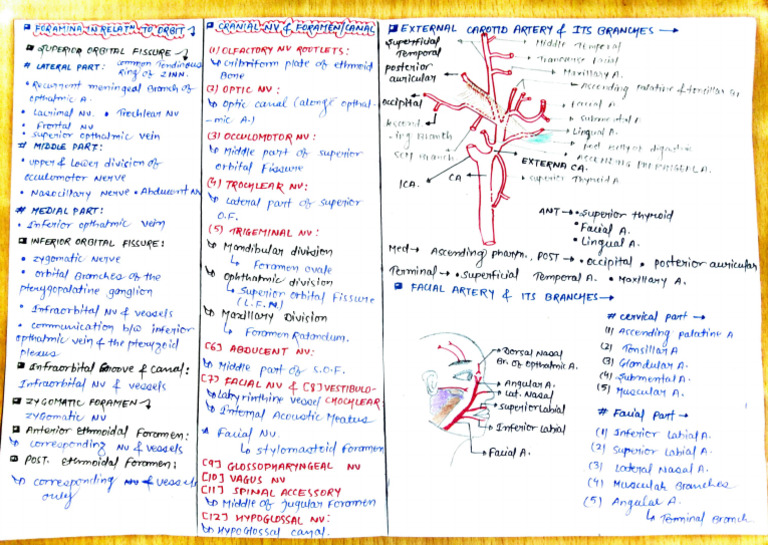 FORAMINA IN RELATN TO ORBIT
SUPERIOR ORBITAL FISSURE
# LATERAL PART: common Tendinous
Ring of ZINN.
• Recurrent meningeal Branch of
opthalmic A.
• Lacrimal Nv. • Trochlear Nv
• Frontal Nv
• superior opthalmic vein
# MIDDLE PART:
• upper & Lower division of
occulomotor Nerve
• Nasociliary Nerve • Abducent Nv
# MEDIAL PART:
• Inferior opthalmic vein
INFERIOR ORBITAL FISSURE:
• zygomatic Nerve
• orbital Branches of the
pterygopalatine ganglion
• Infraorbital Nv & vessels
• communication b/w inferior
opthalmic vein & the pterygoid
plexus
Infraorbital Groove & canal:
Infraorbital NV & vessels
ZYGOMATIC FORAMEN
zygomatic NV
Anterior Ethmoidal Foramen:
corresponding NV & vessels
POST. Ethmoidal Foramen:
corresponding NV & vessels
only
CRANIAL NV & FORAMEN/CANAL
(1) OLFACTORY NV ROOTLETS:
cribriform plate of ethmoid
Bone
(2) OPTIC NV:
optic canal (along opthal-
-mic A.)
(3) OCCULOMOTOR NV:
Middle part of superior
orbital Fissure
(4) TROCHLEAR NV:
Lateral part of superior
O.F.
(5) TRIGEMINAL NV:
Mandibular division
Foramen ovale
Ophthalmic division
Superior orbital Fissure
(L.F.N)
Maxillary Division
Foramen Rotandum.
[6] ABDUCENT NV:
Middle part of S.O.F.
[7] FACIAL NV & [8] VESTIBULO-
CHOCHLEAR:
Labyrinthine vessel
Internal Acoustic Meatus
Facial Nv.
stylomastoid foramen
[9] GLOSSOPHARYNGEAL NV
[10] VAGUS NV
[11] SPINAL ACCESSORY
Middle of Jugular Foramen
[12] HYPOGLOSSAL NV:
Hypoglossal canal.
EXTERNAL CAROTID ARTERY & ITS BRANCHES
Superficial
Temporal
posterior
auricular
occipital
Ascend
-ing Branch
SCM Branch
ICA.
CA
Middle Temporal
Transverse Facial
Maxillary A.
Ascending palatine & tonsillar
Facial A
submental A
Lingual A.
EXTERNA CA.
superior Thyroid A
ANT • Superior thyroid
• Facial A.
• Lingual A.
Med Ascending pharyn., POST • occipital • posterior auricular
Terminal • Superficial Temporal A. • Maxillary A.
FACIAL ARTERY & ITS BRANCHES
Dorsal Nasal
Br. of Opthalmic A.
Angular A.
Lat. Nasal
superior Labial
Inferior Labial
Facial A.
# cervical part
(1) Ascending palatine A
(2) Tonsillar A
(3) Glandular A.
(4) submental A.
(5) Muscular A.
# Facial Part
(1) Inferior Labial A.
(2) Superior Labial A.
(3) Lateral Nasal A.
(4) Muscular Branches
(5) Angular A.
Terminal Branch